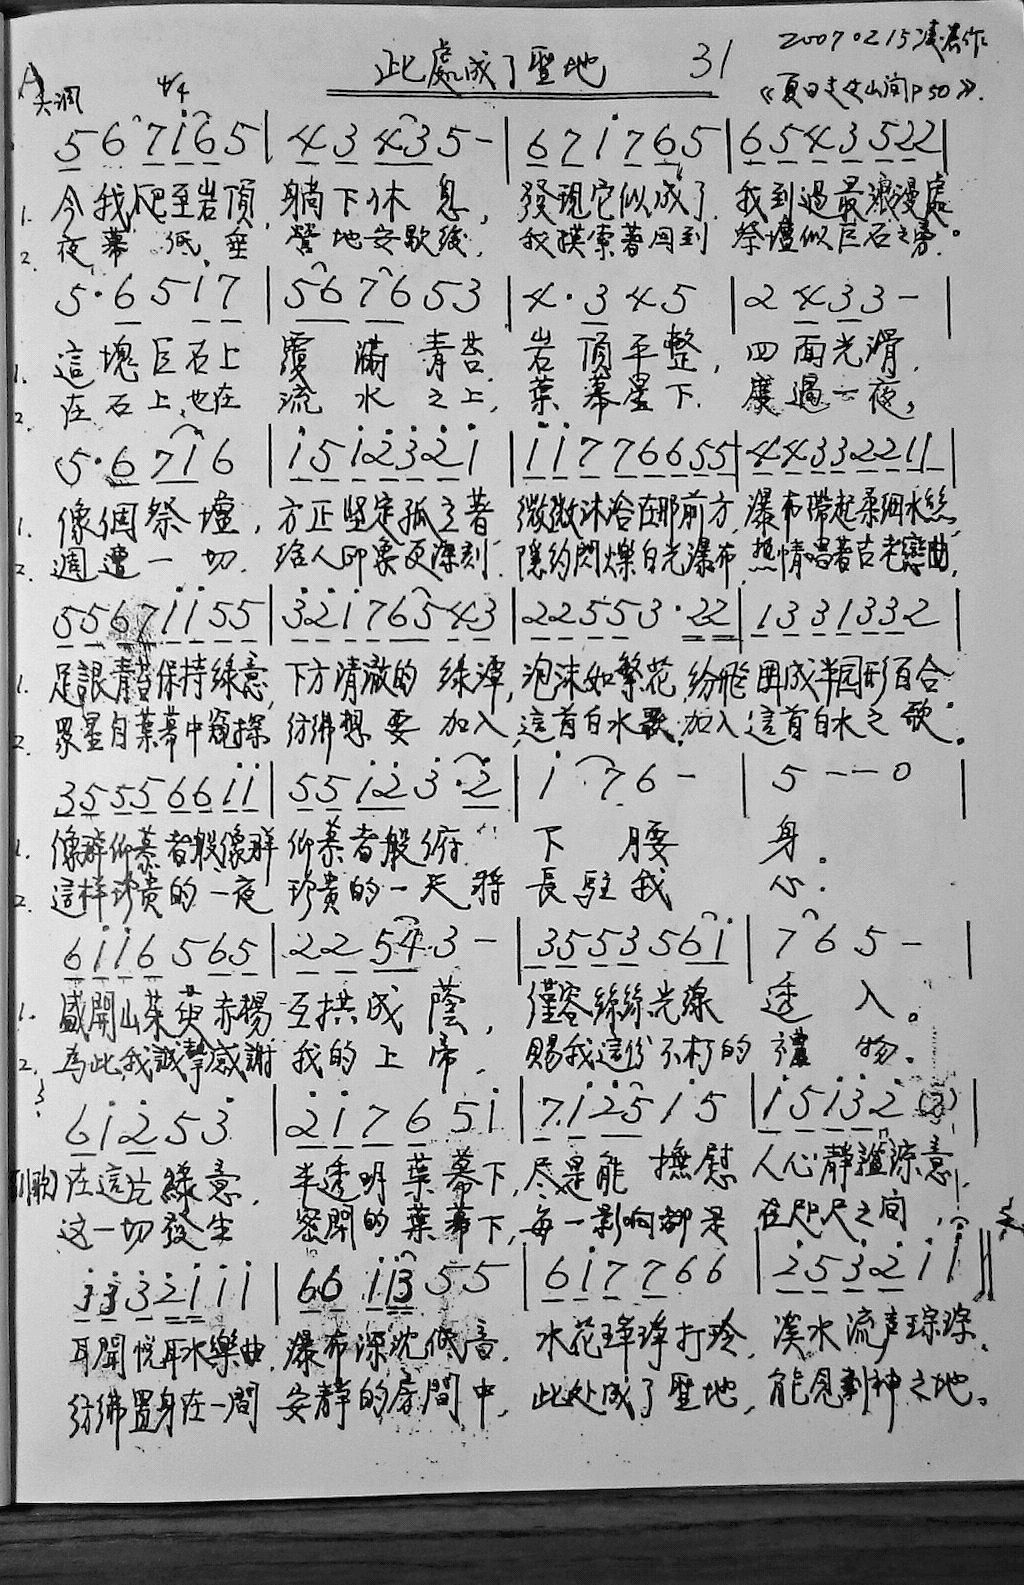 此處成了聖地 31 2007.02.15凌晨作
A大調 4/4 《夏日走过山间P50》.
5 6 7 i 6 5 | 4 3 4 3 5 - | 6 7 i 7 6 5 | 6 5 4 3 5 2 2 |
1. 今我爬至岩頂, 躺下休息, 發現它似成了 我到過最浪漫處
2. 夜幕低垂, 營地安歇後, 我摸索著回到 祭壇似巨石之旁。
5 · 6 5 i 7 | 5 6 7 6 5 3 | 4 · 3 4 5 | 2 4 3 3 - |
1. 這塊巨石上 覆滿青苔, 岩頂平整, 四面光滑,
2. 在石上,也在 流水之上, 葉幕星下, 度過一夜,
5 · 6 7 i 6 | i 5 i 2 3 2 i | i i 7 7 6 6 5 5 | 4 4 3 3 2 2 1 1 |
1. 像個祭壇, 方正坚定孤立著 微微沐浴在那前方, 瀑布帶起柔細水絲,
2. 週遭一切, 給人印象更深刻, 隱約閃爍白光瀑布, 熱情唱著古老戀曲,
5 5 6 7 i i 5 5 | 3 2 i 7 6 5 4 3 | 2 2 5 5 3 · 2 2 | 1 3 3 1 3 3 2 |
1. 足設青苔保持綠意, 下方清澈的 綠潭, 泡沫如繁花, 纷飛 圍成半园形百合。
2. 眾星自葉幕中窺探 彷彿想要加入 這首白水歌, 加入這首白水之歌。
3 5 5 5 6 6 i i | 5 5 i 2 3 · 2 | i 7 6 - | 5 - - 0 |
1. 像群仰慕者般像群 仰慕者般俯 下腰 身。
2. 這样珍貴的一夜 珍貴的一天將 長駐我 心.
6 i i 6 5 6 5 | 2 2 5 4 3 - | 3 5 5 3 5 6 i | 7 6 5 - |
1. 盛開山茱萸赤楊 互拱成蔭, 僅容絲絲光線 透入。
2. 為此,我誠摯感謝 我的上帝, 賜我這份不朽的 禮物。
6 i 2 5 3 | 2 i 7 6 5 i | 7 i 2 5 i 5 | i 5 i 3 2 (2) |
(副歌) 在這片綠意, 半透明葉幕下, 尽是能撫慰 人心靜謐涼意,
这一切發生 密閉的葉幕下, 每一影响都是 在咫尺之间,
3 3 3 2 i i i | 6 6 i i 3 5 5 | 6 i 7 7 6 6 | 2 5 3 2 i i ||
耳聞悦耳水樂曲, 瀑布深沈低音, 水花琤琤打玲, 溪水流声琮琮,
彷彿置身在一間 安靜的房間中, 此处成了聖地, 能見到神之地。